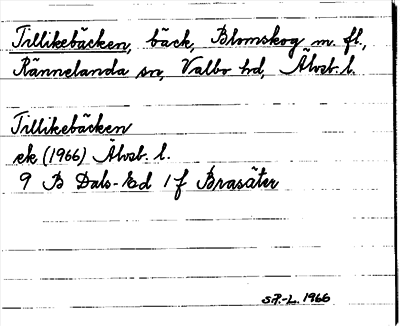 Tillikebäcken, bäck, Blomskog m. fl.,
Rännelanda sn, Valbo hd, Älvsb. l.
Tillikebäcken
ek (1966) Älvsb. l.
9 B Dals-Ed 1 f Brasäter
S.F.-L. 1966